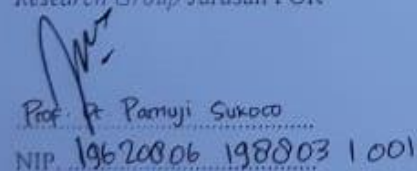 Research Group Jurusan POR
Prof. Dr Pamuji Sukoco
NIP. 19620806 198803 1 001